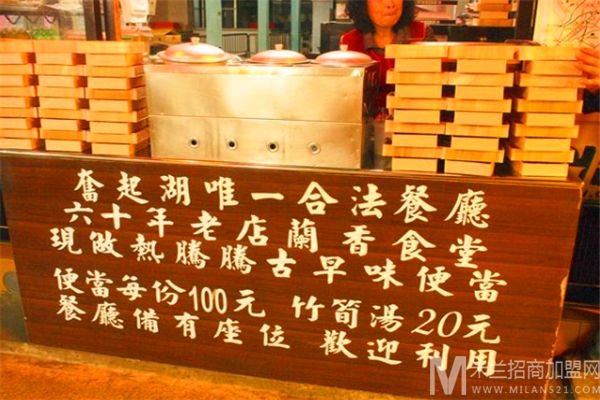 奮起湖唯一合法餐廳
六十年老店蘭香食堂
現做熱騰騰古早味便當
便當每份100元 竹筍湯20元
餐廳備有座位 歡迎利用
米兰招商加盟网
WWW.MILAN521.COM